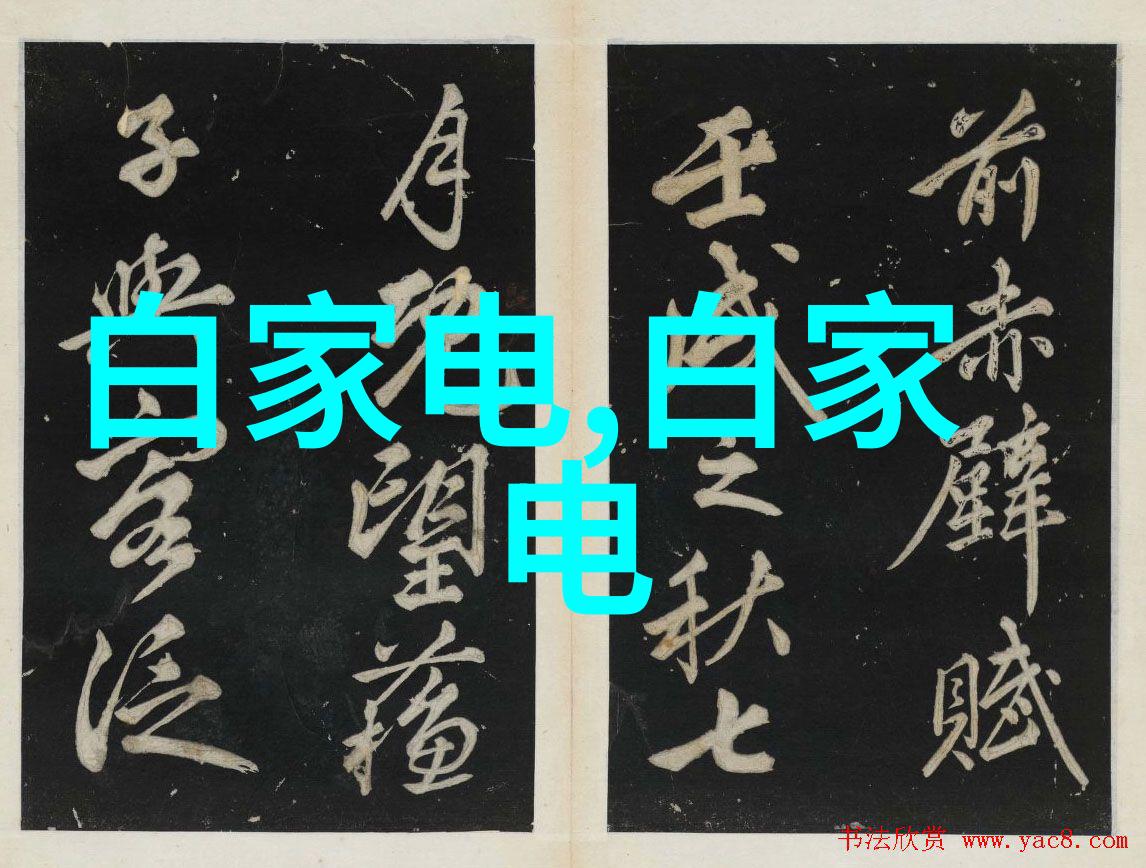 前赤壁賦
壬戌之秋七
月既望蘓
子與客泛
白家电,白家
电
书法欣赏 www.yac8.com